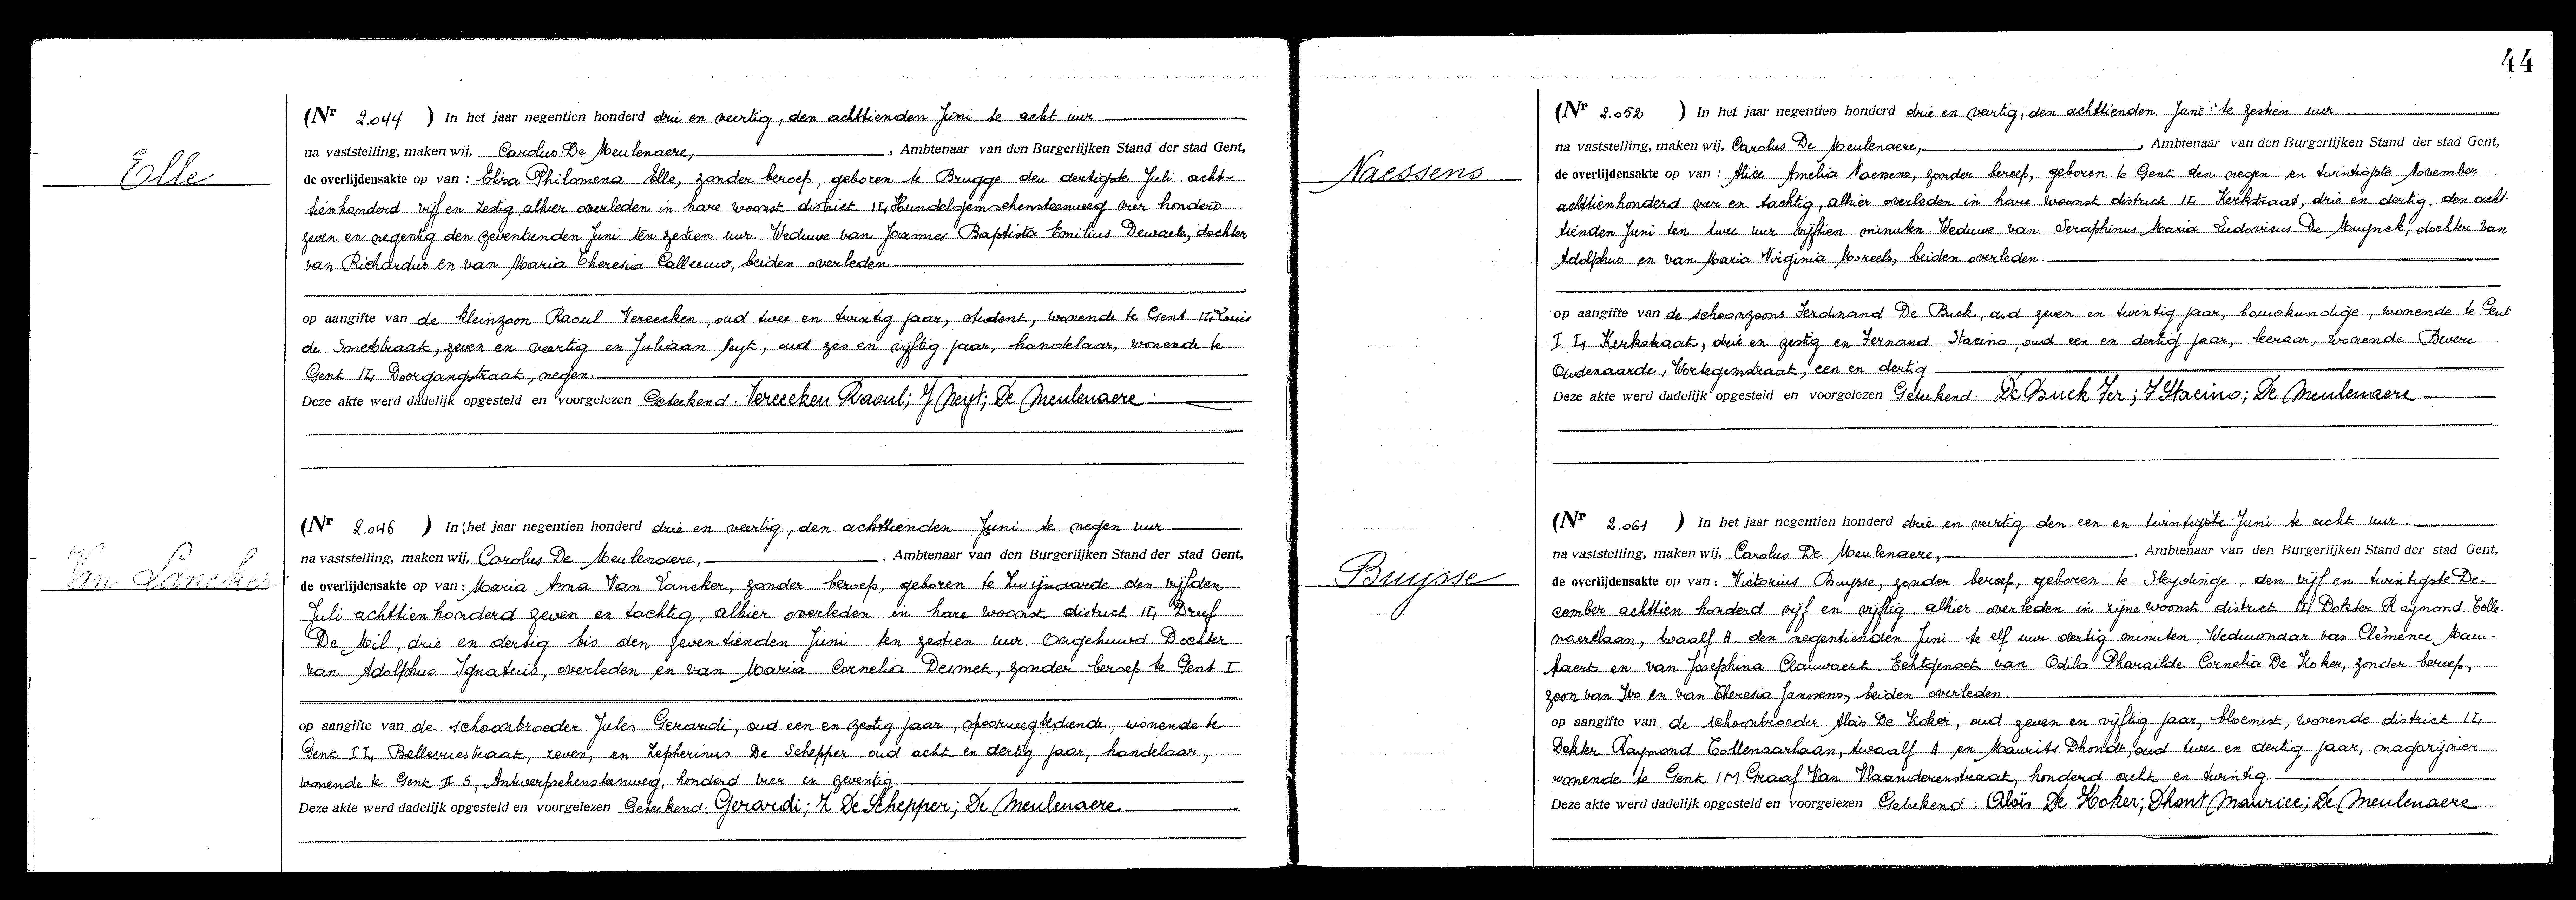 44
Elle
(Nr 2.044 ) In het jaar negentien honderd drie en veertig, den achttienden Juni te acht uur
na vaststelling, maken wij, Carolus De Meulenaere, , Ambtenaar van den Burgerlijken Stand der stad Gent,
de overlijdensakte op van : Elisa Philomena Elle, zonder beroep, geboren te Brugge den dertigste Juli acht-
tienhonderd vijf en zestig alhier overleden in hare woonst district I4 Hundelgemschensteenweg vier honderd
zeven en negentig den zeventienden Juni ten zestien uur. Weduwe van Joannes Baptista Emilius Dewaele, dochter
van Richardus en van Maria Theresia Calleeuw, beiden overleden
op aangifte van de kleinzoon Raoul Vereecken, oud twee en twintig jaar, student, wonende te Gent I4 Louis
de Smetstraat, zeven en veertig en Juliaan Neyt, oud zes en vijftig jaar, handelaar, wonende te
Gent I4 Doorgangstraat, negen.
Deze akte werd dadelijk opgesteld en voorgelezen Geteekend: Vereecken Raoul; J Neyt; De Meulenaere
Van Lancker
(Nr 2.046 ) In het jaar negentien honderd drie en veertig, den achttienden Juni te negen uur
na vaststelling, maken wij, Carolus De Meulenaere, , Ambtenaar van den Burgerlijken Stand der stad Gent,
de overlijdensakte op van : Maria Anna Van Lancker, zonder beroep, geboren te Zwijnaarde den vijfden
Juli achttienhonderd zeven en tachtig, alhier overleden in hare woonst district I4, Dreef
De Mil, drie en dertig bis den zeventienden Juni ten zestien uur. Ongehuwd. Dochter
van Adolphus Ignatius, overleden en van Maria Cornelia Desmet, zonder beroep te Gent I
op aangifte van de schoonbroeder Jules Gerardi, oud een en zestig jaar, spoorwegbediende, wonende te
Gent I4, Bellevuestraat, zeven, en Zepherinus De Schepper oud acht en dertig jaar, handelaar,
wonende te Gent II S, Antwerpschensteenweg, honderd vier en zeventig
Deze akte werd dadelijk opgesteld en voorgelezen Geteekend: Gerardi; Z De Schepper; De Meulenaere
Naessens
(Nr 2.052 ) In het jaar negentien honderd drie en veertig, den achttienden Juni te zestien uur
na vaststelling, maken wij, Carolus De Meulenaere, , Ambtenaar van den Burgerlijken Stand der stad Gent,
de overlijdensakte op van : Alice Amelia Naessens, zonder beroep, geboren te Gent den negen en twintigste November
achttienhonderd vier en tachtig, alhier overleden in hare woonst district I4 Kerkstraat, drie en dertig, den acht-
tienden Juni ten twee uur vijftien minuten. Weduwe van Seraphinus Maria Ludovicus De Muynck, dochter van
Adolphus en van Maria Virginia Moreels, beiden overleden.
op aangifte van de schoonzoons Ferdinand De Buck, oud zeven en twintig jaar, bouwkundige, wonende te Gent
I 4, Kerkstraat, drie en zestig en Fernand Stacino, oud een en dertig jaar, leeraar, wonende Bevere
Oudenaarde, Wortegemstraat, een en dertig
Deze akte werd dadelijk opgesteld en voorgelezen Geteekend: De Buck Fer; F Stacino; De Meulenaere
Buysse
(Nr 2.061 ) In het jaar negentien honderd drie en veertig den een en twintigste Juni te acht uur.
na vaststelling, maken wij, Carolus De Meulenaere, , Ambtenaar van den Burgerlijken Stand der stad Gent,
de overlijdensakte op van : Victorius Buysse, zonder beroep, geboren te Sleydinge, den vijf en twintigste De-
cember achttien honderd vijf en vijftig, alhier overleden in zijne woonst district I4 Dokter Raymond Colle-
naerelaan, twaalf A den negentienden Juni te elf uur dertig minuten. Weduwnaar van Clémence Mau-
taert en van Josephina Clauwaert. Echtgenoot van Odila Pharaïlde Cornelia De Koker, zonder beroep,
zoon van Ivo en van Theresia Janssens, beiden overleden.
op aangifte van de schoonbroeder Aloïs De Koker, oud zeven en vijftig jaar, bloemist, wonende district I4
Dokter Raymond Collenaarlaan, twaalf A en Maurits Dhondt, oud twee en dertig jaar, magazijnier
wonende te Gent I M Graaf Van Vlaanderenstraat, honderd acht en twintig
Deze akte werd dadelijk opgesteld en voorgelezen Geteekend: Aloïs De Koker; Dhont Maurice; De Meulenaere